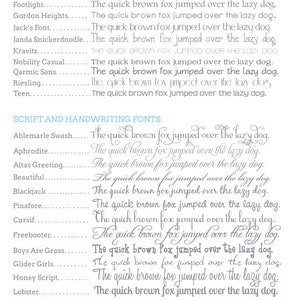 Footlight. . . . . . . . . . . . . The quick brown fox jumped over the lazy dog.
Gordon Heights. . . . . . The quick brown fox jumped over the lazy dog.
Jack's Font. . . . . . . . . . . The quick brown fox jumped over the lazy dog.
Janda Snickerdoodle. . . . The quick brown fox jumped over the lazy dog.
Kravitz. . . . . . . . . . . . . . . THE QUICK BROWN FOX JUMPED OVER THE LAZY DOG.
Nobility Casual . . . . . . . The quick brown fox jumped over the lazy dog.
Qarmic Sans. . . . . . . . . . The quick brown fox jumped over the lazy dog.
Riesling . . . . . . . . . . . . . . The quick brown fox jumped over the lazy dog.
Teen. . . . . . . . . . . . . . . . . The quick brown fox jumped over the lazy dog.
SCRIPT AND HANDWRITING FONTS:
Ablemarle Swash. . . . . The quick brown fox jumped over the lazy dog.
Aphrodite. . . . . . . . . . . . The quick brown fox jumped over the lazy dog.
Altas Greeting. . . . . . . . The quick brown fox jumped over the lazy dog.
Beautiful . . . . . . . . . . . . . The quick brown fox jumped over the lazy dog.
Blackjack . . . . . . . . . . . . The quick brown fox jumped over the lazy dog.
Pinafore. . . . . . . . . . . . . The quick brown fox jumped over the lazy dog.
Cursif. . . . . . . . . . . . . . . . The quick brown fox jumped over the lazy dog.
Freebooter. . . . . . . . . . . The quick brown fox jumped over the lazy dog.
Boys Are Gross. . . . . . . . The quick brown fox jumped over the lazy dog.
Glider Girls . . . . . . . . . . The quick brown fox jumped over the lazy dog.
Honey Script. . . . . . . . . . The quick brown fox jumped over the lazy dog.
Lobster. . . . . . . . . . . . . . The quick brown fox jumped over the lazy dog.